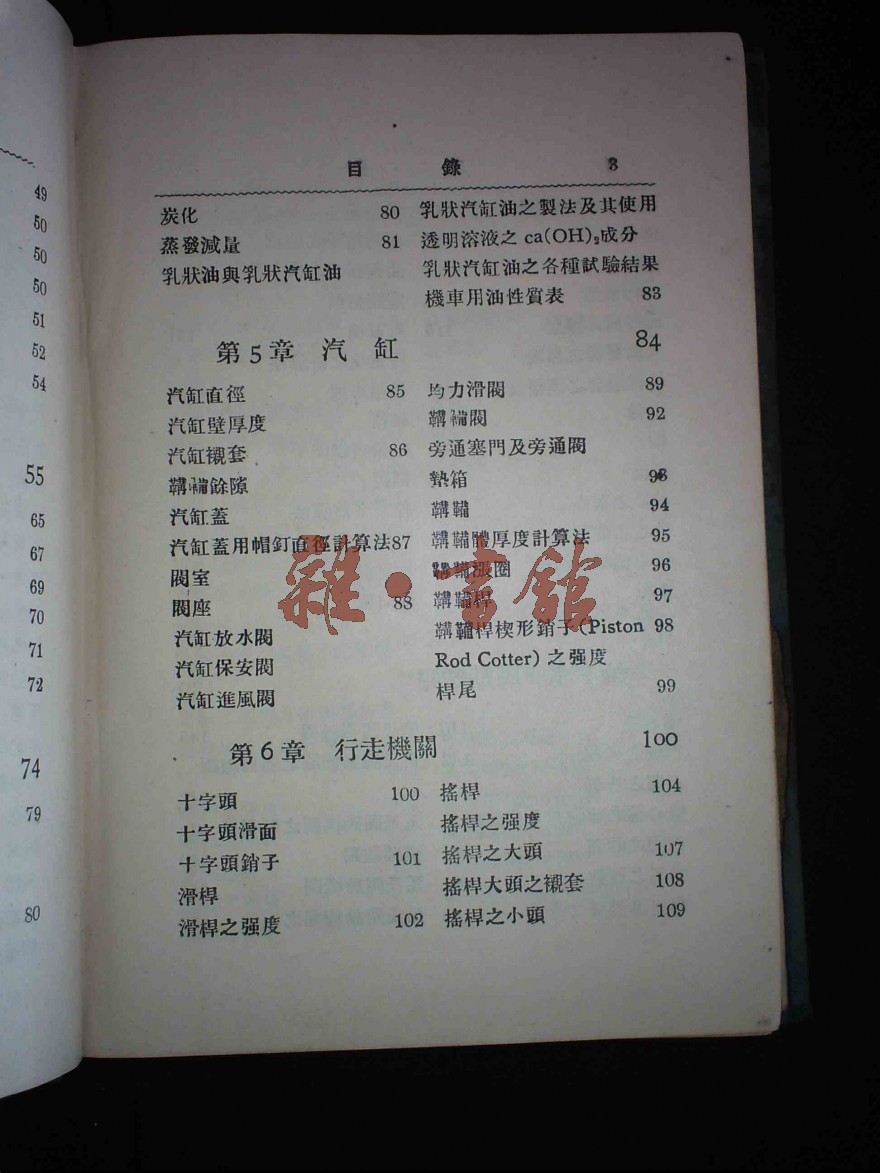 49
50
50
50
51
52
54
55
65
67
69
70
71
72
74
79
80
目 錄 3
炭化 80
蒸發減量 81
乳狀油與乳狀汽缸油
乳狀汽缸油之製法及其使用
透明溶液之 ca(OH)₂成分
乳狀汽缸油之各種試驗結果
機車用油性質表 83
第5章 汽 缸 84
汽缸直徑 85
汽缸壁厚度
汽缸襯套 86
鞲鞴餘隙
汽缸蓋
汽缸蓋用帽釘直徑計算法87
閥室
閥座 88
汽缸放水閥
汽缸保安閥
汽缸進風閥
均力滑閥 89
鞲鞴閥 92
旁通塞門及旁通閥
墊箱 93
鞲鞴 94
鞲鞴體厚度計算法 95
鞲鞴漲圈 96
鞲鞴桿 97
鞲鞴桿楔形銷子(Piston 98
Rod Cotter)之强度
桿尾 99
第6章 行走機關 100
十字頭 100
十字頭滑面
十字頭銷子 101
滑桿
滑桿之强度 102
搖桿 104
搖桿之强度
搖桿之大頭 107
搖桿大頭之襯套 108
搖桿之小頭 109
雜·書館